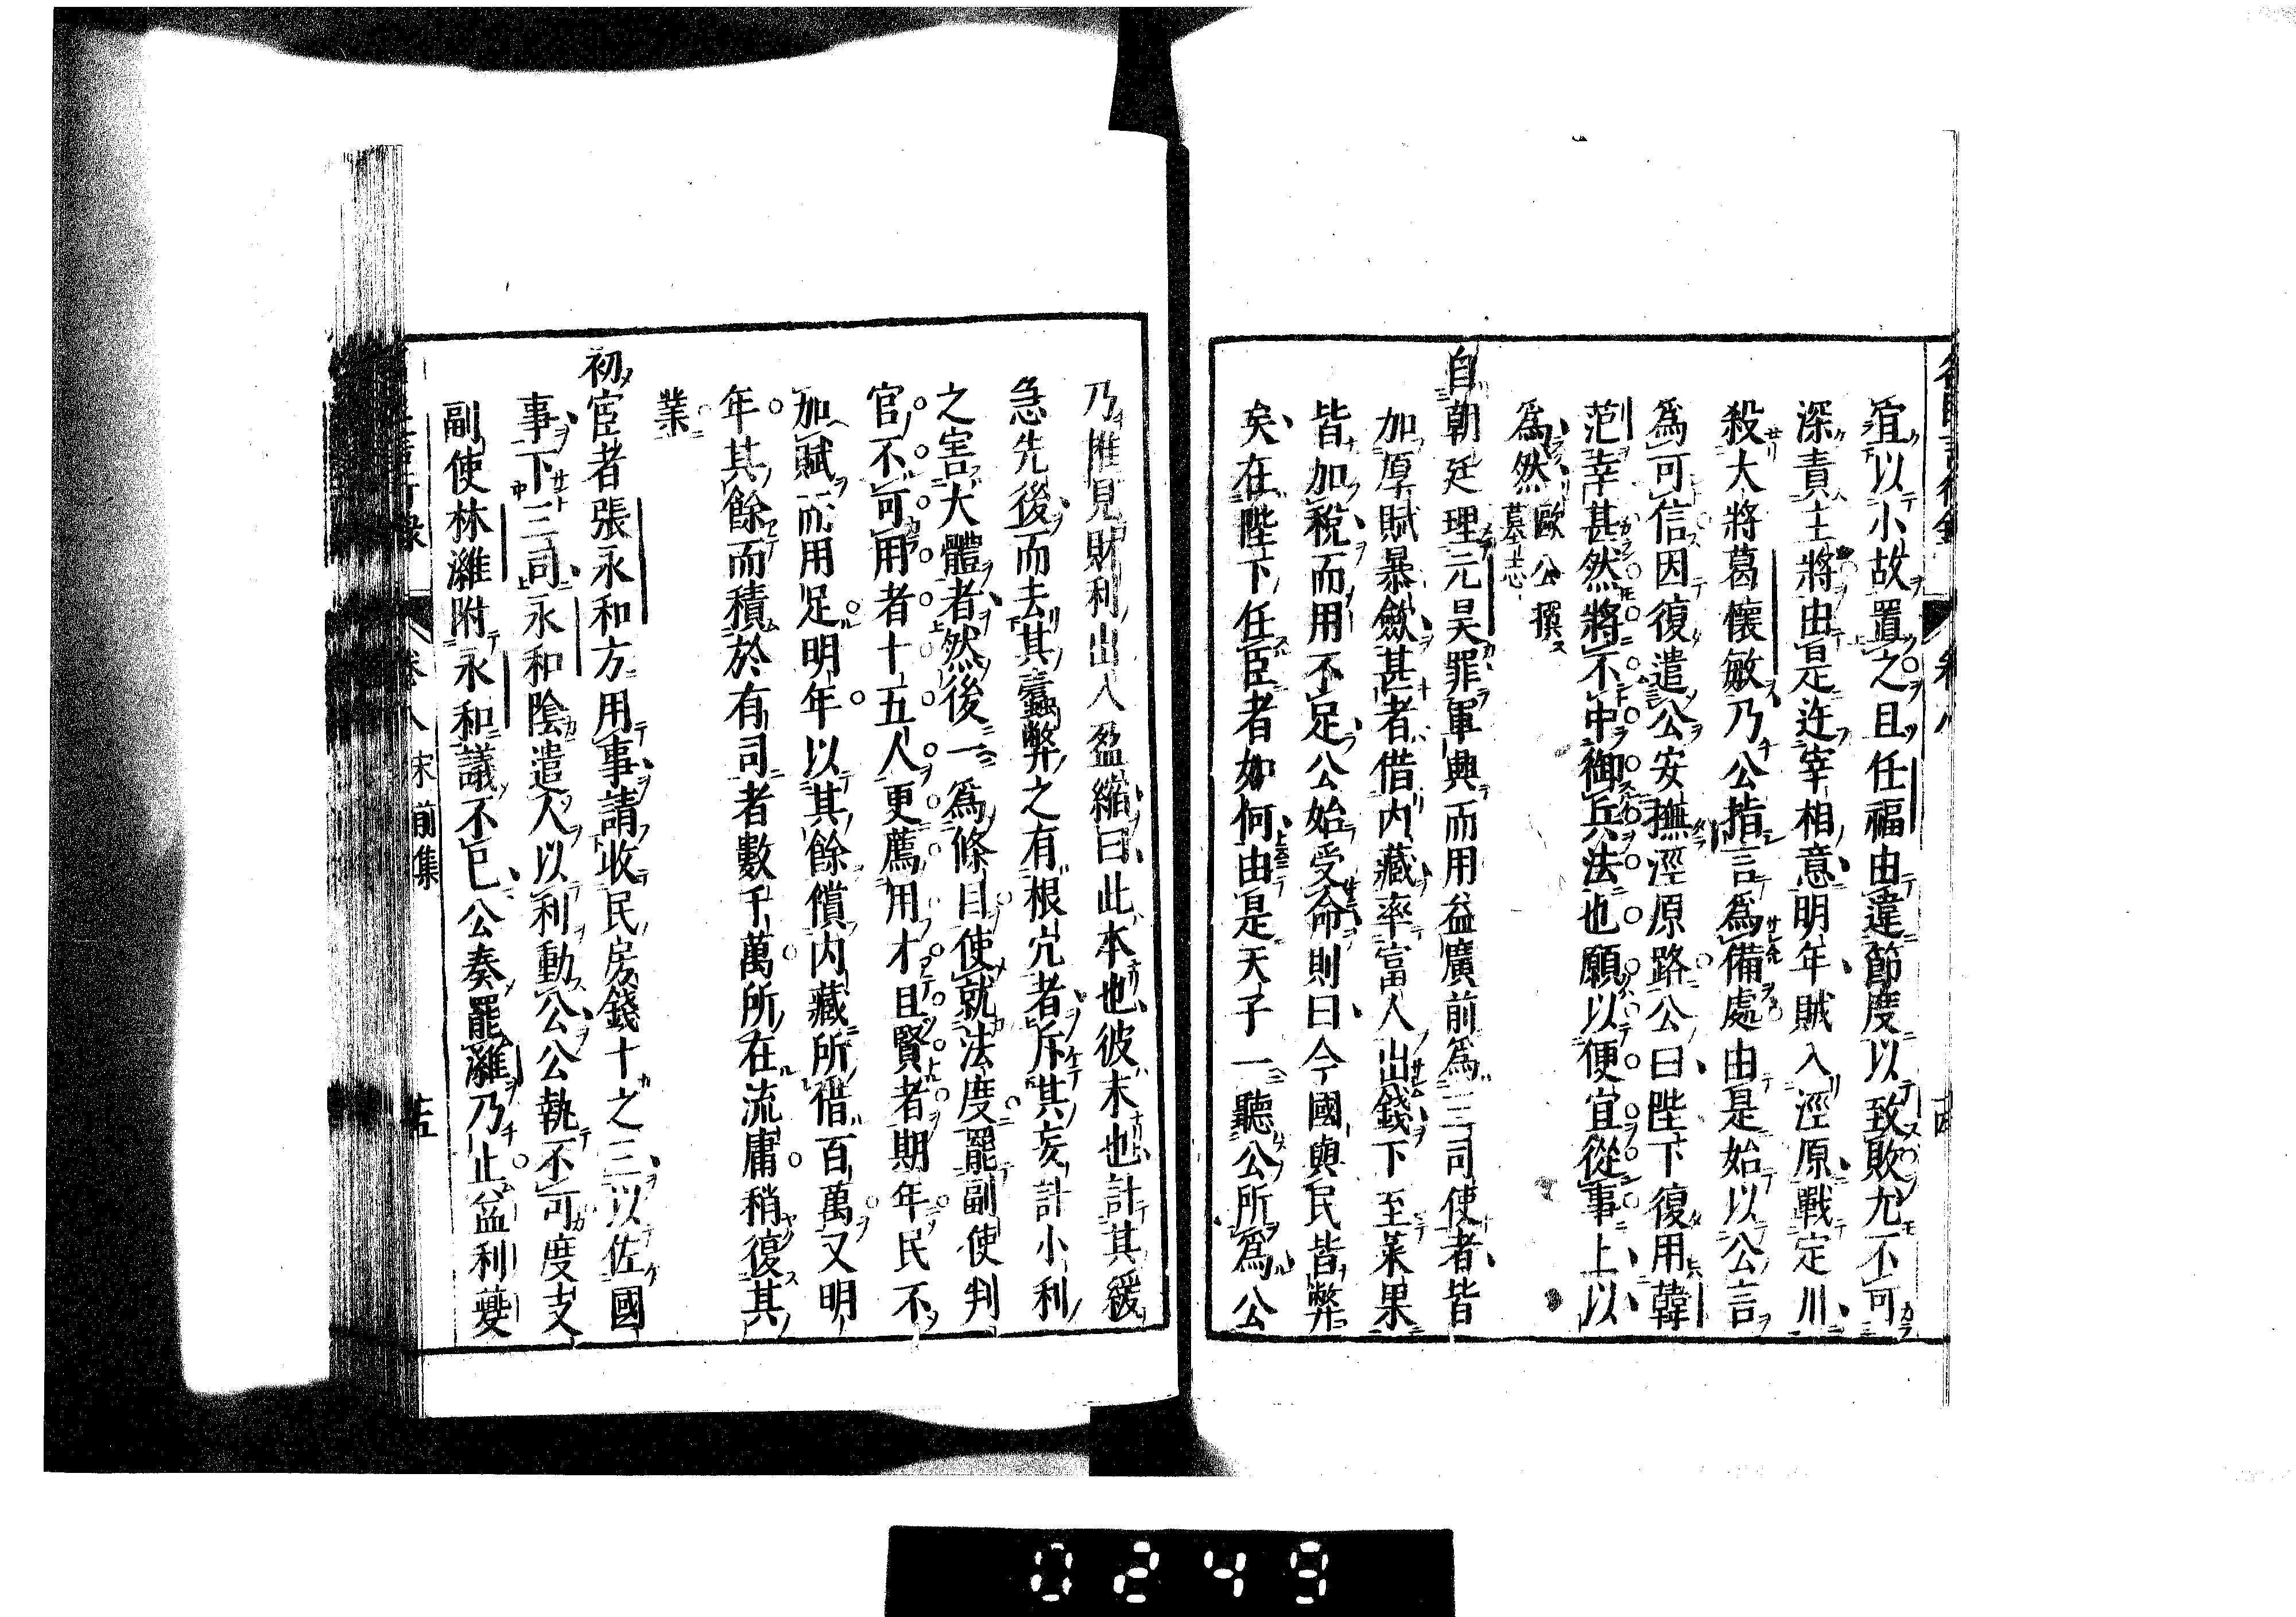 宜以小故置之且任福由違節度以致敗尤不可
深責主將由是迕宰相意明年賊入涇原戰定川
殺大將葛懷敏乃公指言爲備處由是始以公言
爲可信因復遣公安撫涇原路公曰陛下復用韓
范幸甚然將不中御兵法也願以便宜從事上以
爲然歐公撰墓志
自朝廷理元昊罪軍興而用益廣前爲三司使者皆
加厚賦暴斂甚者借内藏率富人出錢下至菜果
皆加稅而用不足公始受命則曰今國與民皆弊
矣在陛下任臣者如何由是天子一聽公所爲公
乃推見財利出入盈縮曰此本也彼末也計其緩
急先後而去其蠹弊之有根穴者斥其妄計小利
之害大體者然後一爲條目使就法度罷副使判
官不可用者十五人更薦用才且賢者期年民不
加賦而用足明年以其餘償内藏所借百萬又明
年其餘而積於有司者數千萬所在流庸稍復其
業
初宦者張永和方用事請收民房錢十之三以佐國
事下三司永和陰遣人以利動公公執不可度支
副使林濰附永和議不已公奏罷濰乃止益利夔
卷八 宋前集
0249